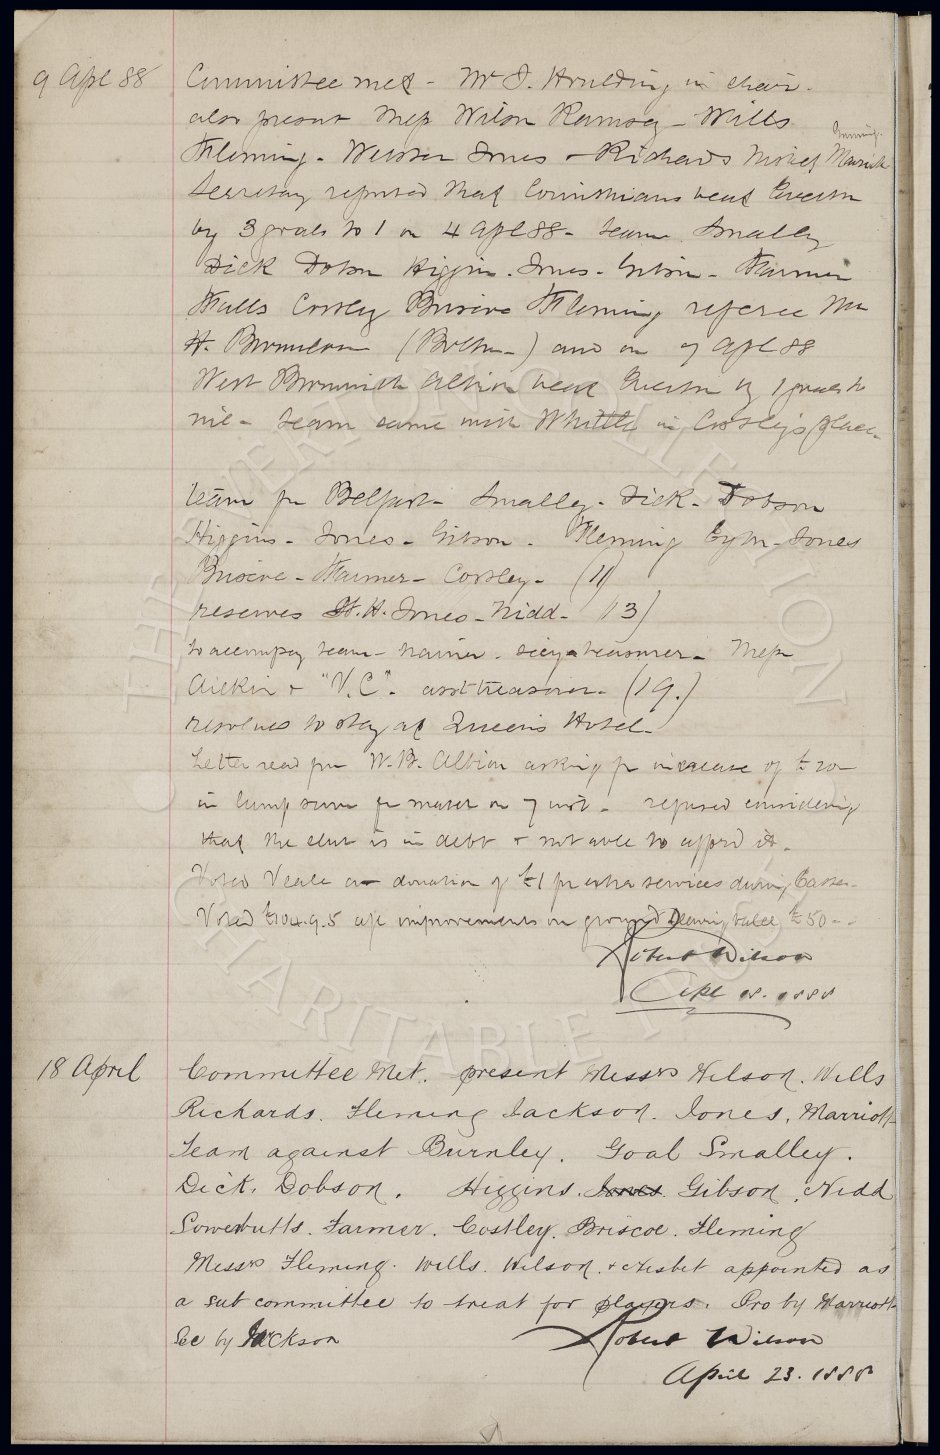 9 Apl 88
Committee met - Mr J. Houlding in chair.
also present Mess Wilson Ramsay - Wills
Fleming - Webster Jones + Richards Nisbet Marriott
Secretary reported that Corinthians beat Everton
by 3 goals to 1 on 4 Apl 88 - team Smalley
Dick Dobson Higgins. Jones - Gibson - Farmer
Watts Costley Briscoe Fleming referee Mr
H. (Bolton -) and on 7 Apl 88
West Bromwich Albion beat Everton by 1 goal to
nil - team same with Whittle in Costley's place.
team for Belfast - Smalley - Dick - Dobson
Higgins - Jones - Gibson - Fleming Jones
Briscoe - Farmer - Costley - (11)
reserves W. H. Jones - Nidd - (13)
to accompany team - trainer - secy treasurer - Mess
Aickin + "V.C". asst treasurer - (19.)
resolved to stay at Queens Hotel.
Letter read from W.B. Albion asking for increase of £20-
in lump sum for match on 7 inst - refused considering
that the club is in debt + not able to afford it.
Voted Veale a donation of £1 for extra services during Easter.
Voted £104.9.5 a/c improvements on ground leaving balce £50 - -
Robert Wilson
Apl 18. 1888
18 April
Committee Met. present Messrs Wilson. Wills
Richards. Fleming Jackson. Jones, Marriott
Team against Burnley. Goal Smalley.
Dick. Dobson. Higgins. Jones. Gibson. Nidd
Lowerbutts. Farmer. Costley. Briscoe. Fleming
Messrs Fleming. Wills. Wilson. + Nisbet appointed as
a sub committee to treat for players. Pro by Marriott
Sec by Jackson
Robert Wilson
April 23. 1888
THE EVERTON COLLECTION
CHARITABLE TRUST